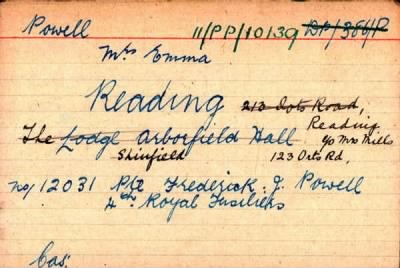 Powell 11/PP/10139 DP/386/P
Mrs Emma
Reading 213 Oots Road,
Reading
The Lodge Arborfield Hall c/o Mrs Mills
Shinfield 123 Orts Rd,
No/ 12031 Pte Frederick. J. Powell
4th Royal Fusiliers
Cas: